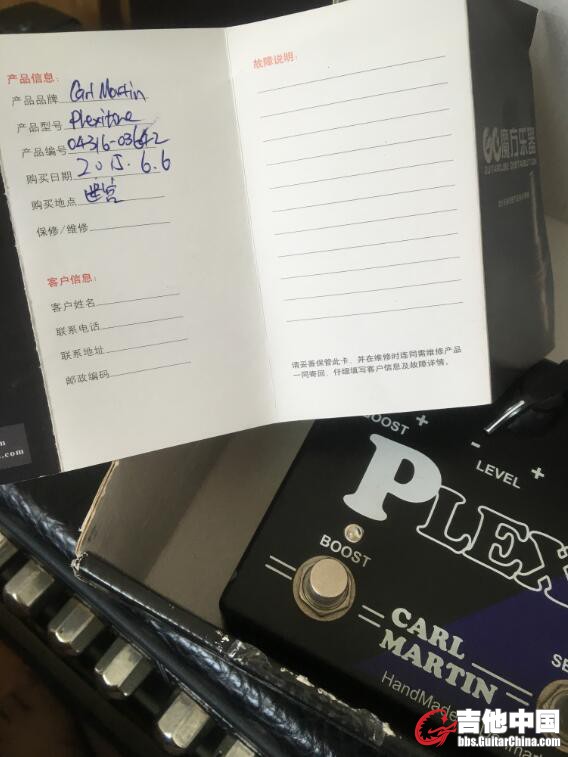 产品信息：
产品品牌 Carl Martin
产品型号 Plexitone
产品编号 04316-03642
购买日期 2015.6.6
购买地点
保修/维修
客户信息：
客户姓名
联系电话
联系地址
邮政编码
故障说明：
请妥善保管此卡，并在维修时连同需维修产品
一同寄回，仔细填写客户信息及故障详情。
魔方乐器
BOOST
LEVEL
PLEX
BOOST
CARL
MARTIN
HandMade
SE
吉他中国
bbs.GuitarChina.com